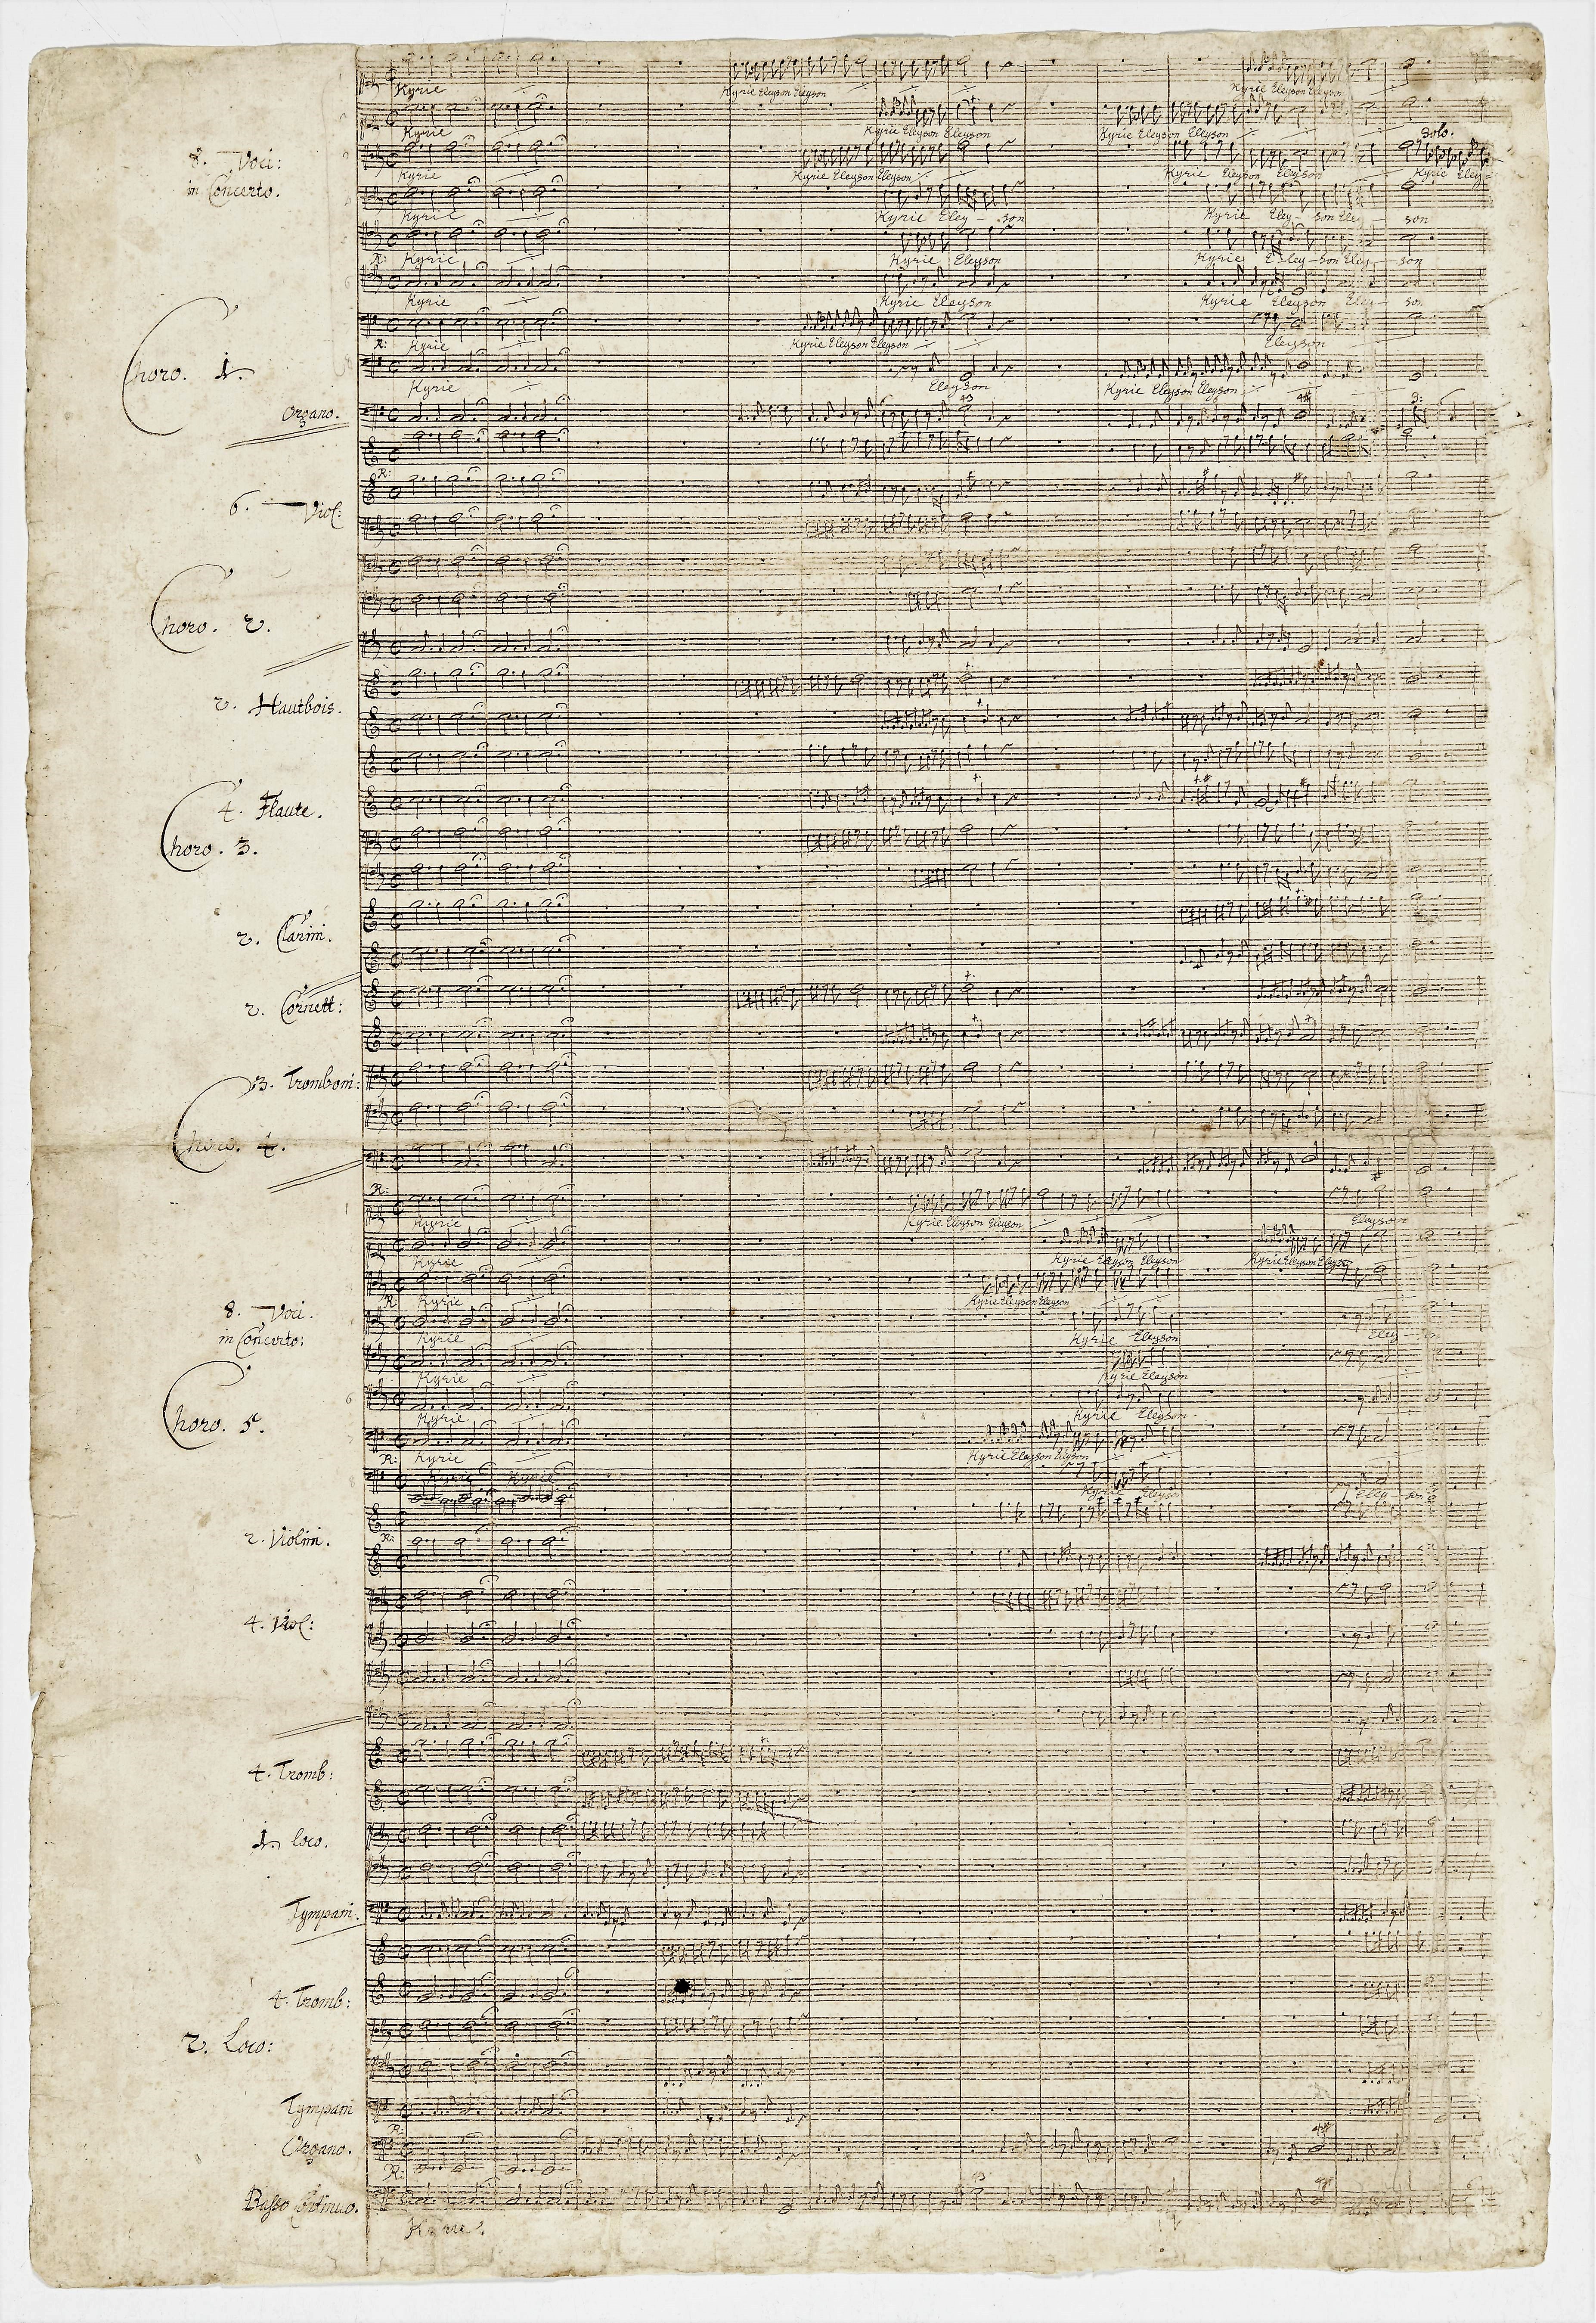 Kyrie
Kyrie Eleyson Eleyson
Kyrie Eleyson Eleyson
Kyrie
Kyrie Eleyson Eleyson
Kyrie Eleyson Eleyson
Solo.
8. Voci:
in Concerto.
Kyrie
Kyrie Eleyson Eleyson
Kyrie Eleyson Eleyson
Kyrie Eley-
Kyrie
Kyrie Eley - son
Kyrie Eley - son Eley - son
R: Kyrie
Kyrie Eleyson
Kyrie E - ley - son Eley - son
Kyrie
Kyrie Eleyson
Kyrie Eleyson Eley - son
R: Kyrie
Kyrie Eleyson Eleyson
Eleyson
Choro. 1.
Kyrie
Eleyson
Kyrie Eleyson Eleyson
Organo.
43
R:
6. Viol:
Choro. 2.
2. Hautbois.
4. Flaute.
Choro. 3.
2. Clarini.
2. Cornett:
3. Tromboni:
Choro. 4.
R:
Kyrie
Kyrie Eleyson Eleyson
Eleyson
Kyrie
Kyrie Eleyson Eleyson
Kyrie Eleyson Eleyson
R: Kyrie
Kyrie Eleyson Eleyson
8. Voci.
in Concerto:
Kyrie
Kyrie Eleyson
Kyrie
Kyrie Eleyson
Kyrie
Kyrie Eleyson
Choro. 5.
R: Kyrie
Kyrie Eleyson Eleyson
Kyrie Kyrie
Kyrie Eleyson
Eley - son
R:
2. Violini.
4. Viol:
4. Tromb:
1. loco.
Tympani.
4. Tromb:
2. Loco:
Tympani
R:
Organo.
R:
Basso Continuo.
Kyrie.